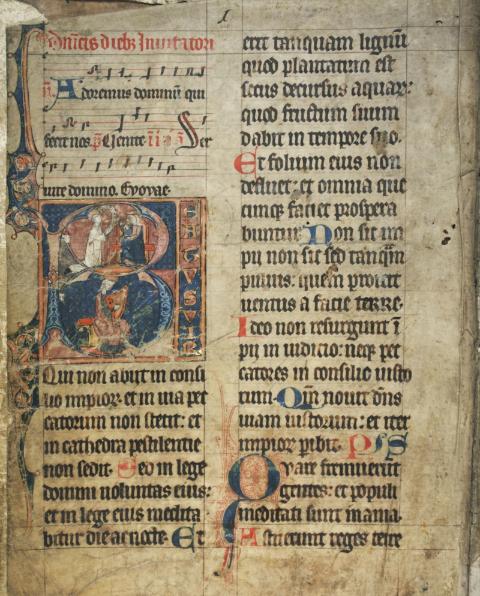 Dñicis dieb; Inuitatori
Adoremus dominū qui
fecit nos. p̄s Uenite ii a Ser
uite domino. Evovae.
BEATUS UIR
Qui non abijt in consi
lio impior· et in uia pec
catorum non stetit: et
in cathedra pestilentie
non sedit. Sed in lege
domini uoluntas eius:
et in lege eius medita
bitur die ac nocte. Et
1
erit tanquam lignū
quod plantatum est
secus decursus aquar:
quod fructum suum
dabit in tempore suo.
Et folium eius non
defluet: et omnia que
cunq; faciet prospera
buntur. Non sic im
pij non sic sed tanq̄m
puluis: quem proicit
uentus a facie terre.
Ideo non resurgunt ī
pij in iudicio: neq; pec
catores in consilio iusto
rum. Qm̄ nouit dn̄s
uiam iustorum: et iter
impior peribit. Ps
Quare fremuerūt
gentes: et populi
meditati sunt inania.
Astiterunt reges terre